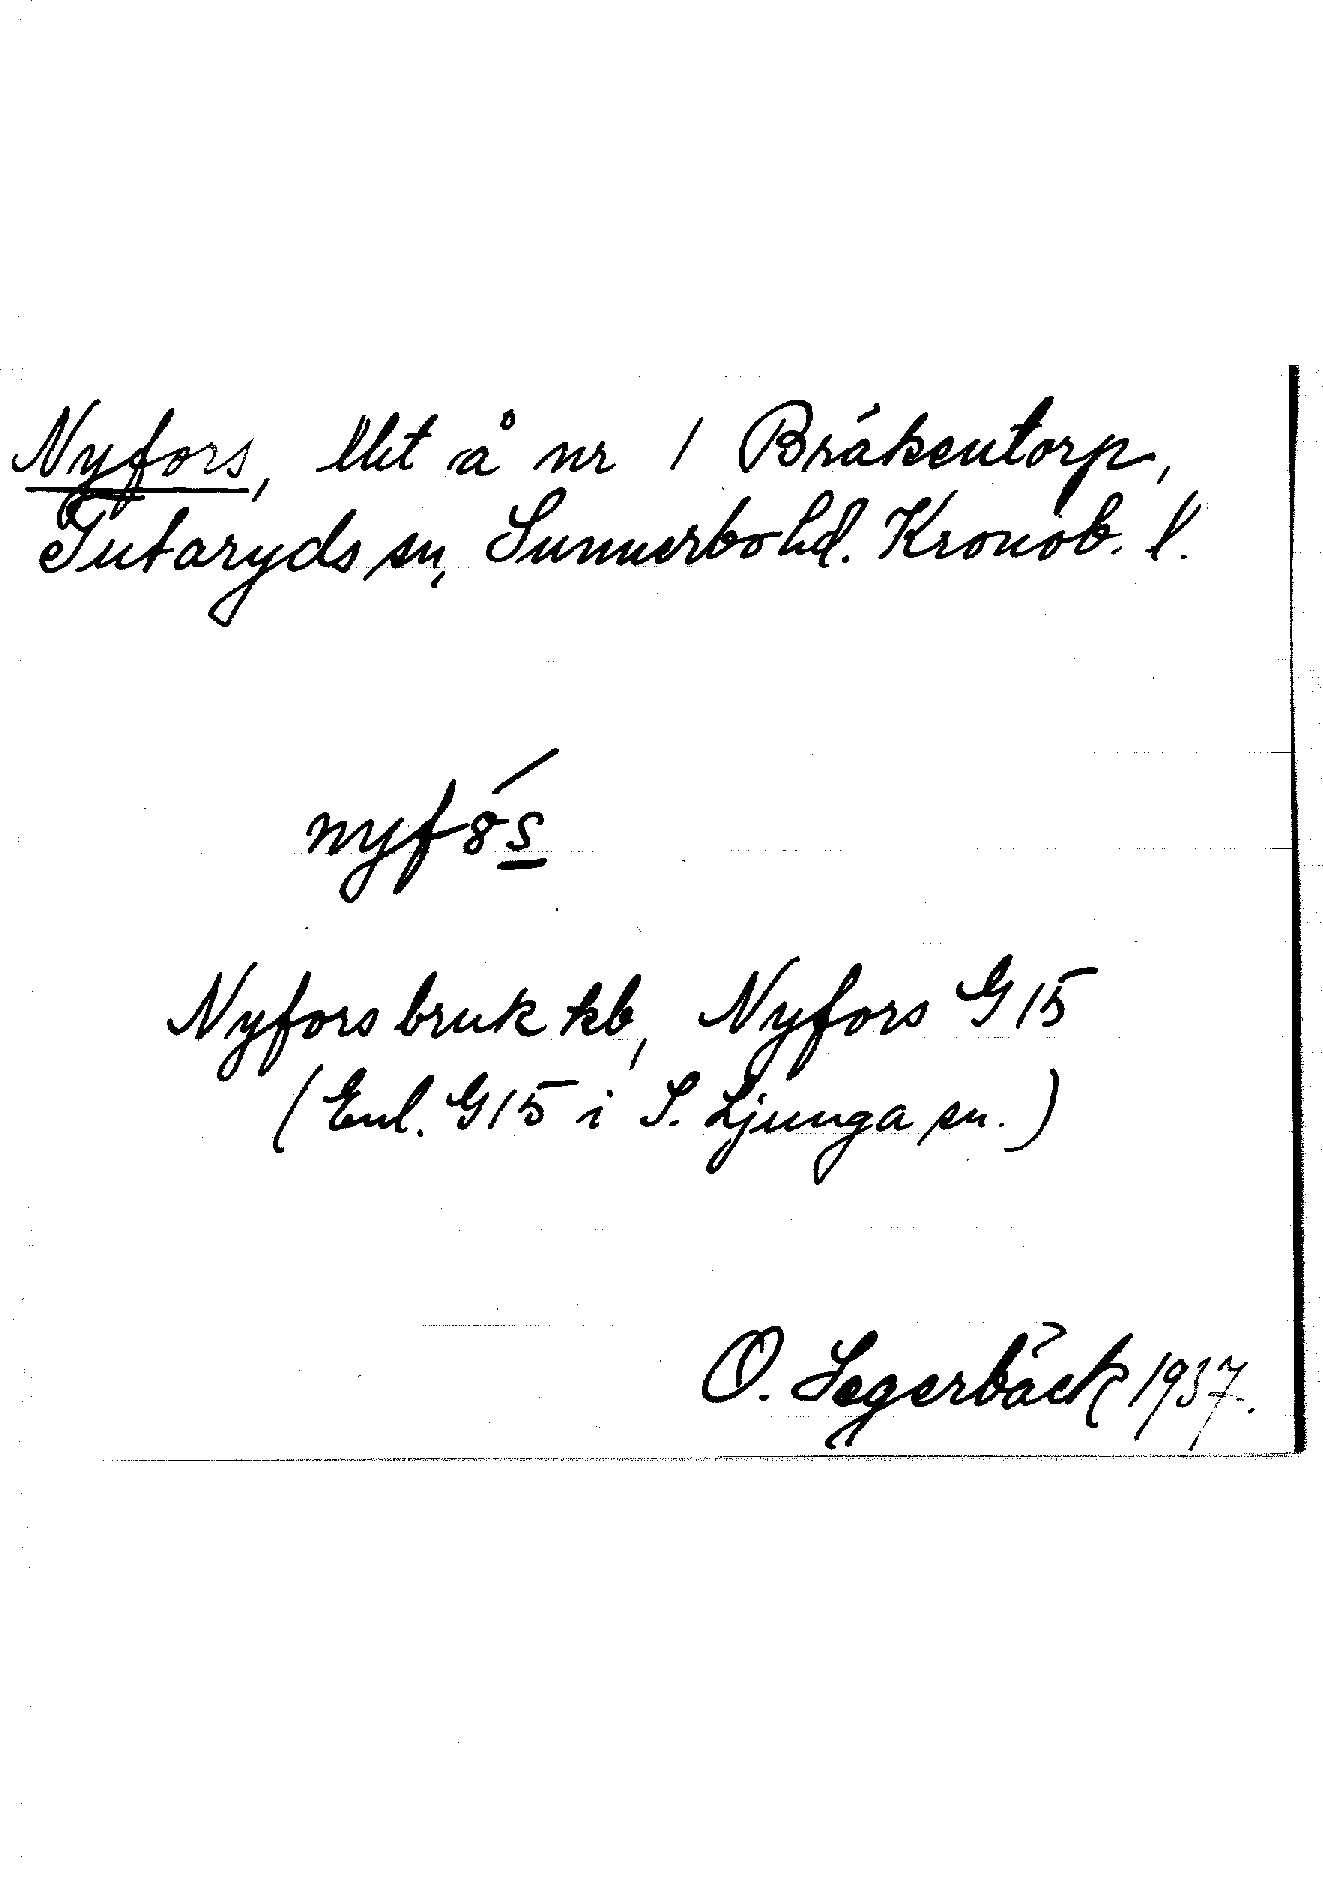 Nyfors, lht å nr 1 Bråkentorp,
Tutaryds sn, Sunnerbo hd. Kronob. l.
nyfs
Nyfors bruk kb, Nyfors G15
(Enl. G15 i S. Ljunga sn.)
O. Segerbäck 1937.